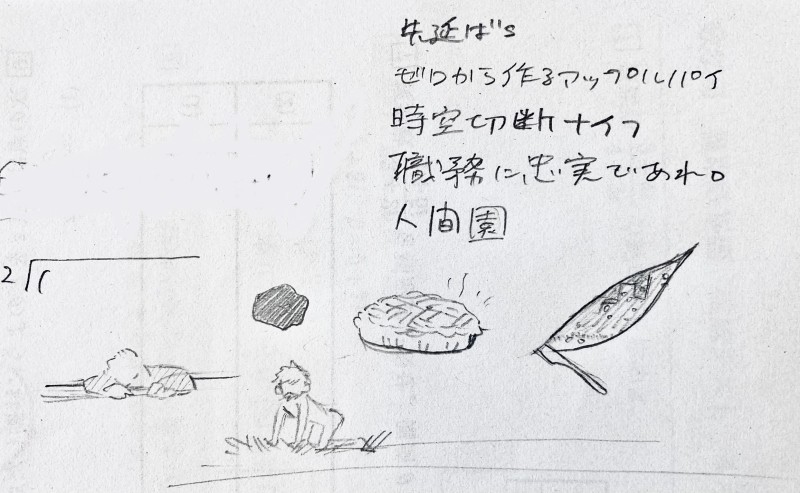 先延ばs
ゼロから作るアップルパイ
時空切断ナイフ
職務に忠実であれ。
人間園
2